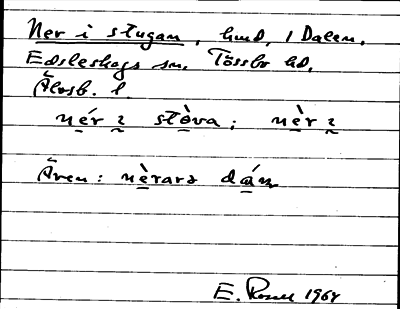 Ner i stugan, hmd, i Dalen,
Edsleskogs sn, Tössbo hd,
Älvsb. l.
nér ɿ stòva; nèr ɿ
Även: nèrarə dán
E. Rosell 1964